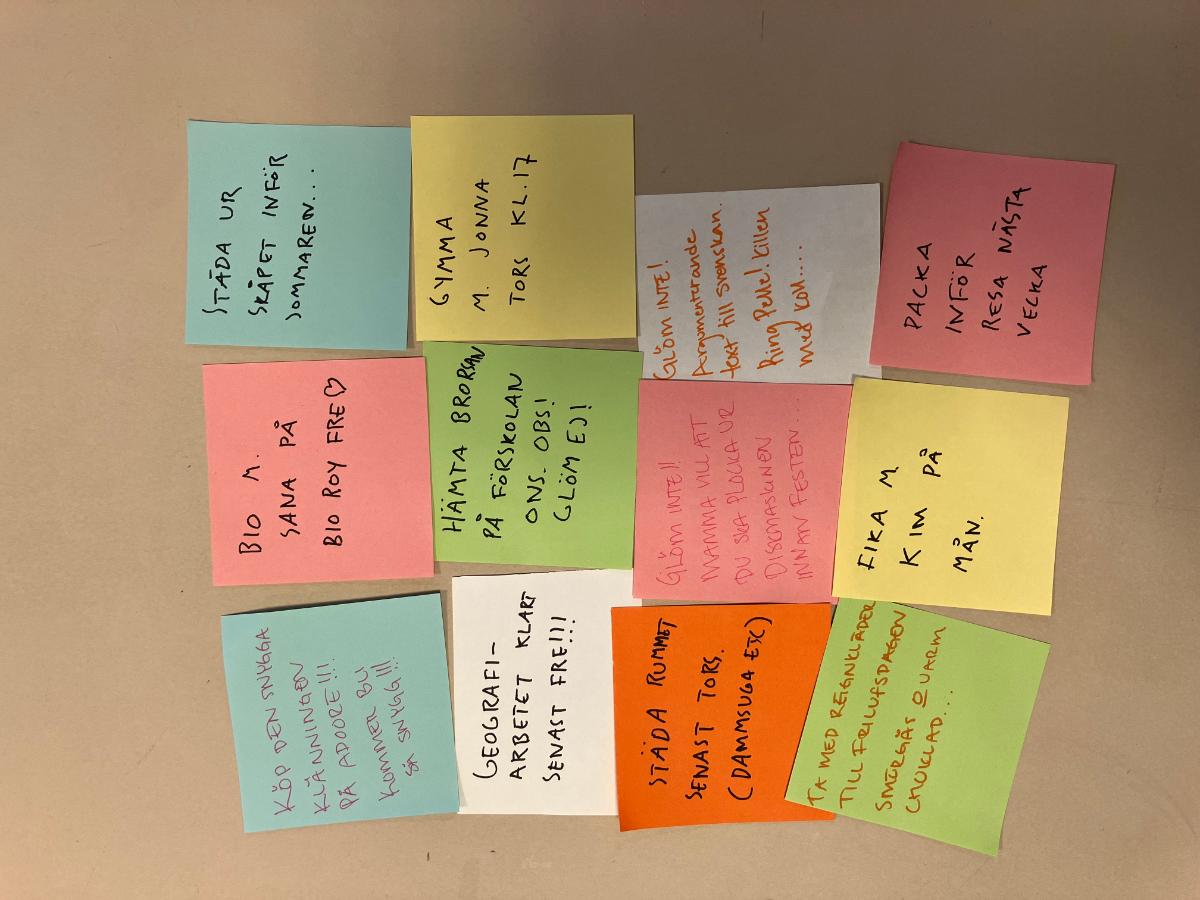 KÖP DEN SNYGGA
KLÄNNINGEN
PÅ ADOORE!!!
KOMMER BLI
SÅ SNYGG!!!
BIO M.
SANA PÅ
BIO ROY FRE♡
STÄDA UR
SKÅPET INFÖR
SOMMAREN...
GEOGRAFI-
ARBETET KLART
SENAST FRE!!!
HÄMTA BRORSAN
PÅ FÖRSKOLAN
ONS. OBS!
GLÖM EJ!
GYMMA
M. JONNA
TORS KL.17
STÄDA RUMMET
SENAST TORS.
(DAMMSUGA ETC)
GLÖM INTE!!
MAMMA VILL ATT
DU SKA PLOCKA UR
DISKMASKINEN
INNAN FESTEN...
GLÖM INTE!
Argumenterande
text till svenskan.
Ring Pelle! killen
med koll....
TA MED REIGNKLÄDER
TILL FRILUFSDAGEN
SMÖRGÅS O VARM
CHOKLAD....
FIKA M
KIM PÅ
MÅN.
PACKA
INFÖR
RESA NÄSTA
VECKA